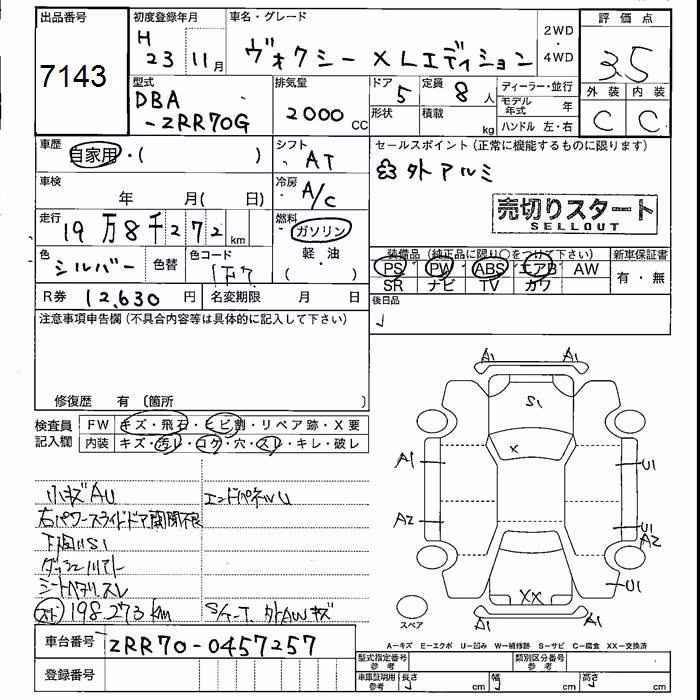 出品番号 初度登録年月 車名・グレード 2WD・4WD 評価点
7143 H 23 11月 ヴォクシー XLエディション 3.5
型式 排気量 ドア 定員 ディーラー・並行 外装 内装
DBA -ZRR70G 2000cc 5 8人 モデル年式 年 C C
形状 積載 kg ハンドル 左・右
車歴 自家用・( ) シフト AT セールスポイント(正常に機能するものに限ります)
外アルミ
車検 年 月( 日) 冷房 A/C
売切りスタート
SELLOUT
走行 19万8千272km 燃料 ガソリン
軽・油
( )
色 シルバー 色替 色コード 1F7
装備品(純正品に限り〇をつけて下さい) 新車保証書
PS PW ABS エアB AW 有・無
SR ナビ TV カワ
R券 12,630円 名変期限 月 日 後日品
注意事項申告欄(不具合内容等は具体的に記入して下さい)
修復歴 有〔箇所 〕
検査員記入欄 FW キズ・飛石・ヒビ割・リペア跡・X要
内装 キズ・汚レ・コゲ・穴・スレ・キレ・破レ
小キズAU エンドパネルU
右パワースライドドア開閉不良
下廻りS1
シートヘタリスレ
198.273km S/ケース 外AWキズ
A1 A1
S1
X
A1 U1
A2 U1
A2
XX U1
A1 A1
スペア
A-キズ E-エクボ U-凹み W-補修跡 S-サビ C-腐食 XX-交換済
車台番号 ZRR70-0457257
登録番号
型式指定番号 参考 類別区分番号 参考
車庫証明用 参考 長さ cm 幅 cm 高さ cm